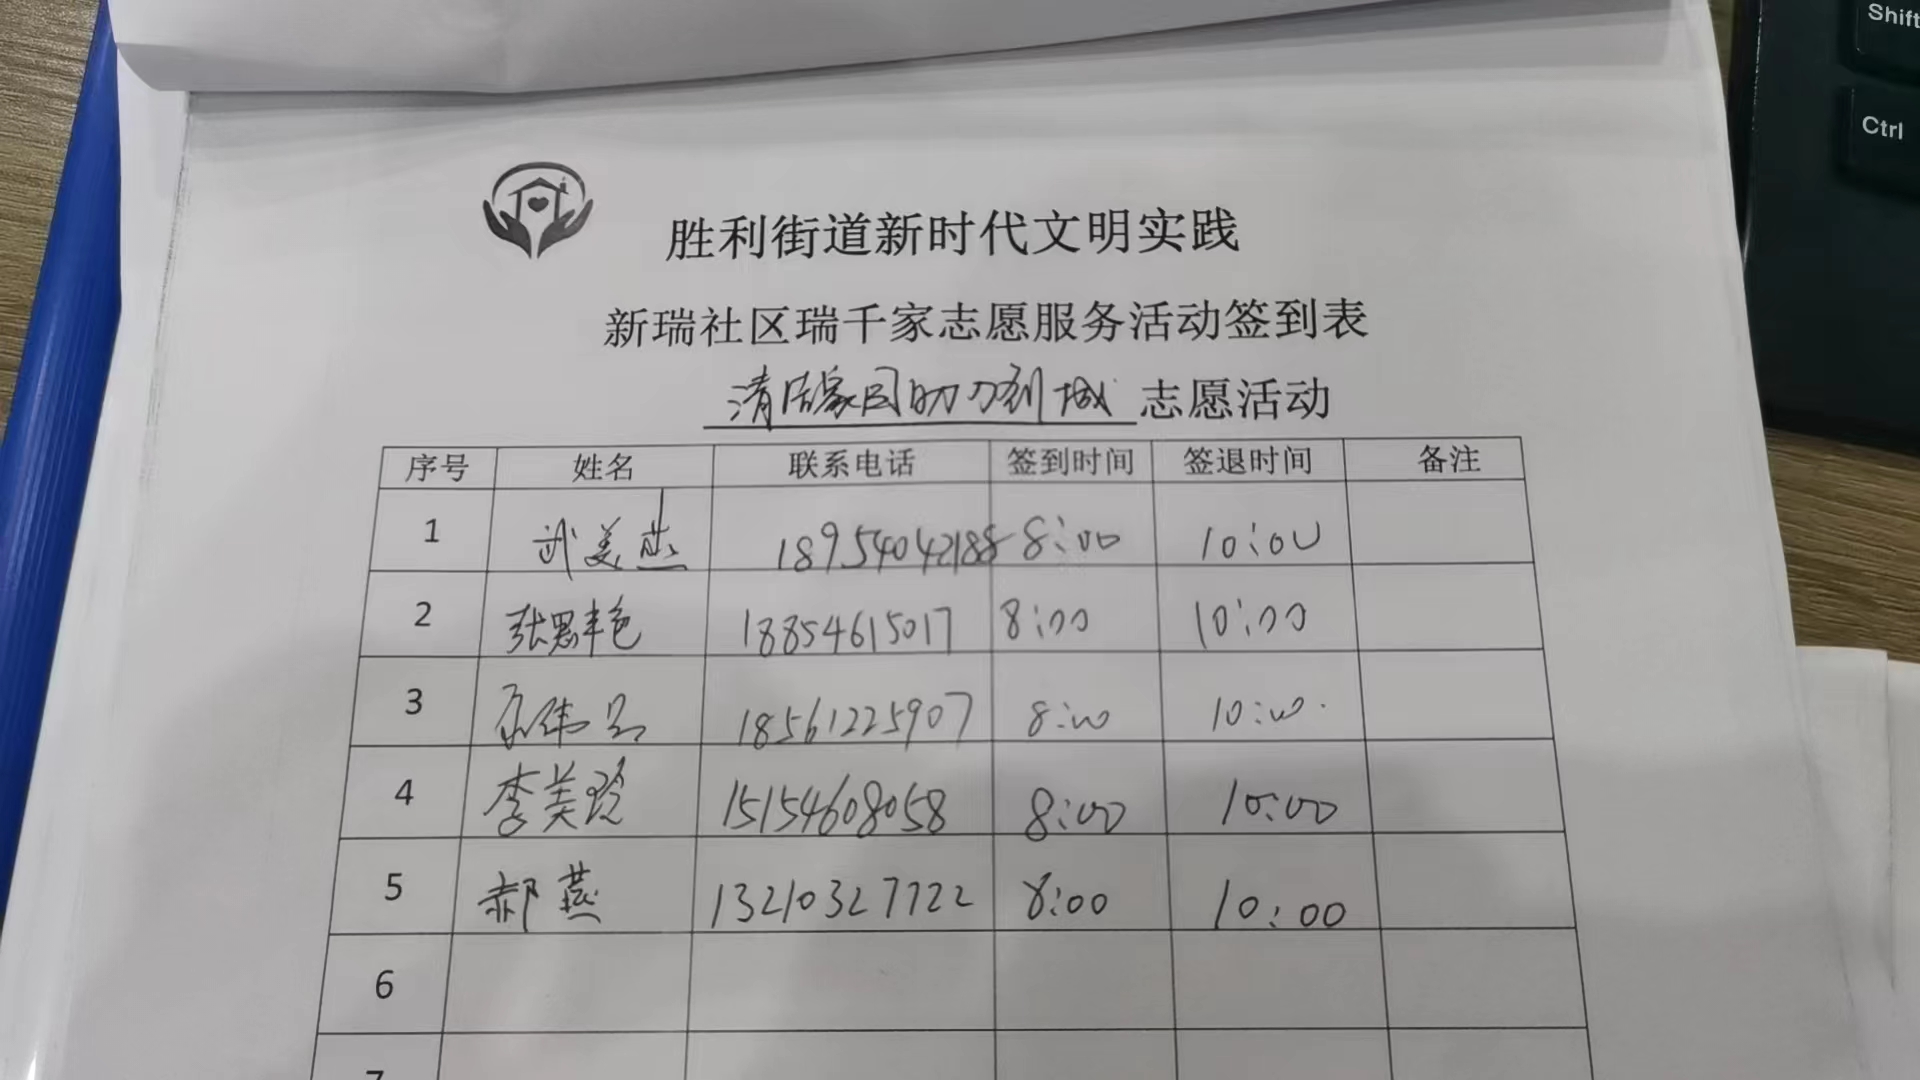 Shift
Ctrl
胜利街道新时代文明实践
新瑞社区瑞千家志愿服务活动签到表
清洁家园助力创城 志愿活动
序号 姓名 联系电话 签到时间 签退时间 备注
1 武美燕 18954042188 8:00 10:00
2 张思艳 18854615017 8:00 10:00
3 18561225907 8:00 10:00
4 李美玲 15154608058 8:00 10:00
5 郝燕 13210327722 8:00 10:00
6
7